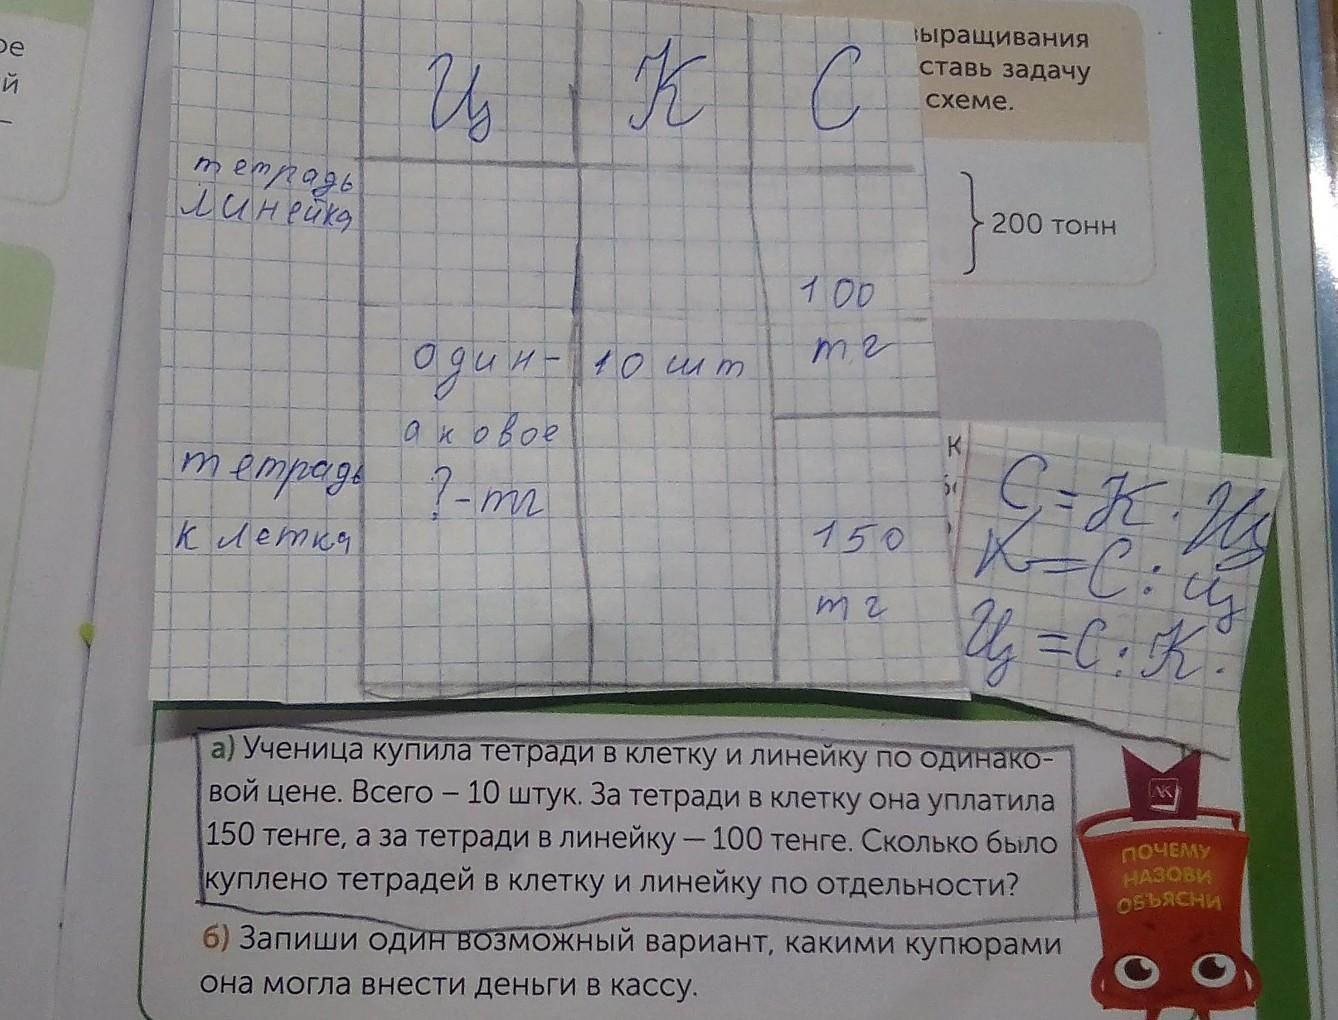 ре
й
выращивания
ставь задачу
схеме.
200 тонн
Ц К С
тетрадь
линейка
100
тг
один- 10 шт
аковое
?-тг
тетрадь
клетка
150
тг
С = К · Ц
К = С : Ц
Ц = С : К.
а) Ученица купила тетради в клетку и линейку по одинако-
вой цене. Всего – 10 штук. За тетради в клетку она уплатила
150 тенге, а за тетради в линейку — 100 тенге. Сколько было
куплено тетрадей в клетку и линейку по отдельности?
б) Запиши один возможный вариант, какими купюрами
она могла внести деньги в кассу.
ПОЧЕМУ
НАЗОВИ
ОБЪЯСНИ